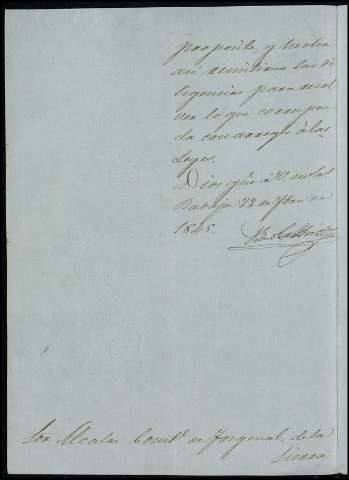 proponela, y hecho
asi remitira las di
ligencias para resol
ver lo que correspon
da con arreglo à las
Leyes.
Dios gue à V. ms. as.
Badajoz 22 de Fbro de
1845.
Sor Alcalde Constl. de Fregenal de la
Sierra